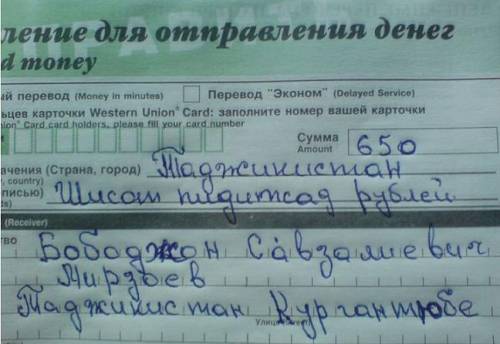 ление для отправления денег
d money
ый перевод (Money in minutes) Перевод "Эконом" (Delayed Service)
ьцев карточки Western Union Card: заполните номер вашей карточки
nion Card card holders, please fill your card number
Сумма 650
Amount
ачения (Страна, город) Таджикистан
, country)
писью) Шисот пидитсад рублей
ds)
(Receiver)
тво Бободжон Савзалиевич
Мирзоев
Таджикистан Кургантюбе
Улица